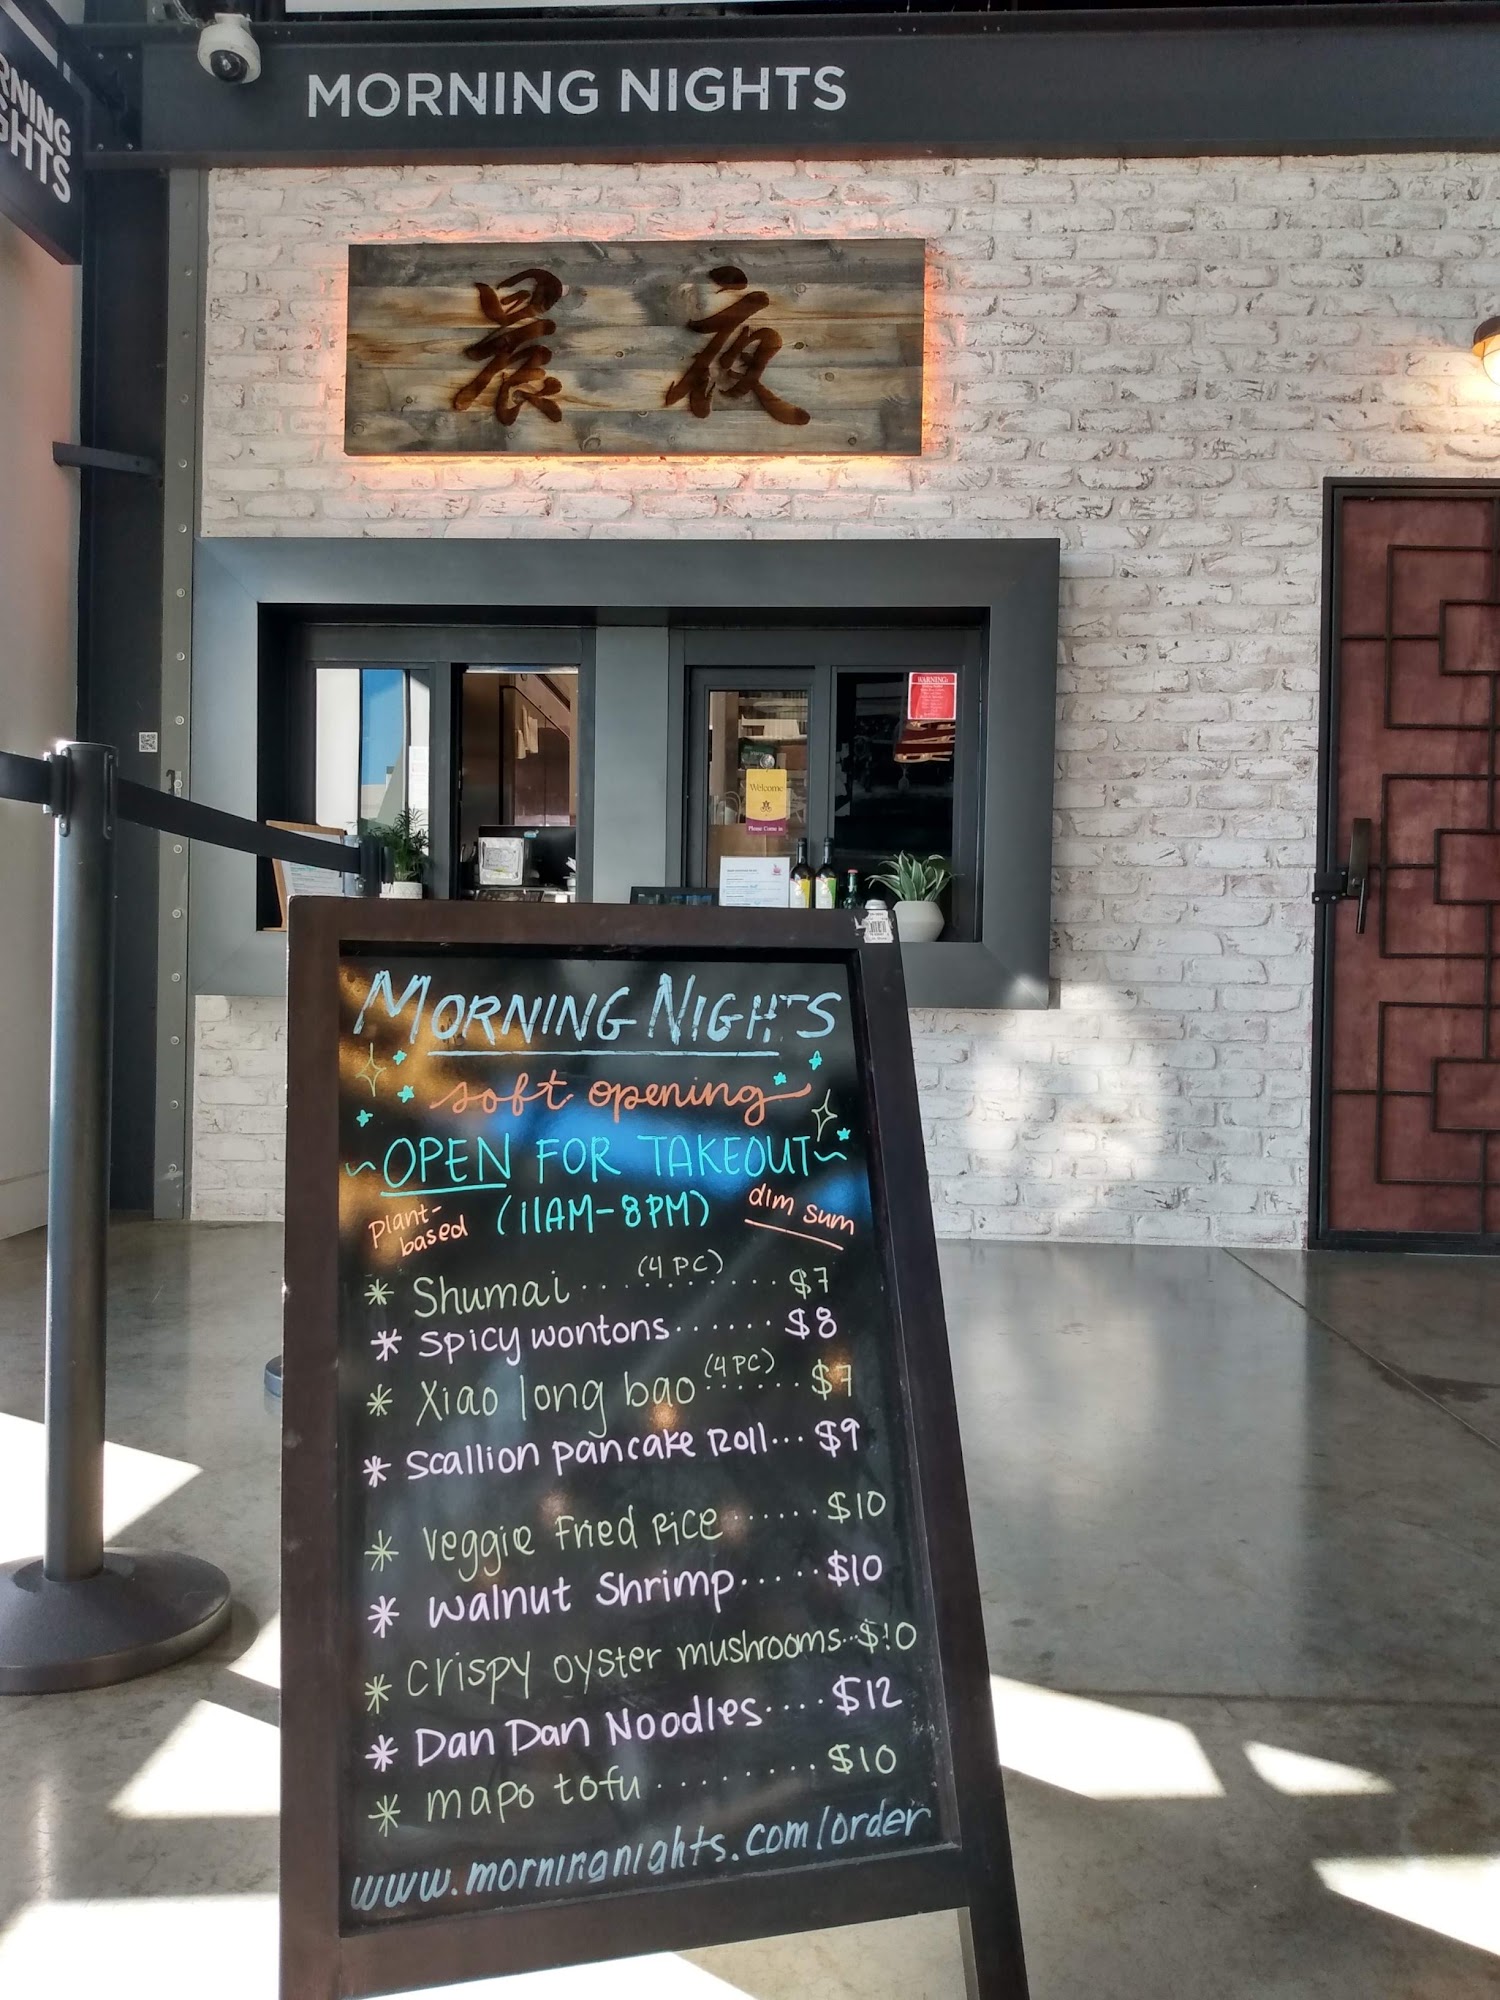 MORNING NIGHTS
RNING
GHTS
晨夜
WARNING:
Welcome
Please Come in
MORNING NIGHTS
soft opening
~OPEN FOR TAKEOUT~
(11AM-8PM)
plant-
based
dim sum
* Shumai...(4 PC)...$7
* Spicy wontons......$8
* Xiao long bao(4 PC)......$7
* Scallion pancake Roll...$9
* Veggie Fried Rice......$10
* Walnut Shrimp.....$10
* Crispy oyster mushrooms...$10
* Dan Dan Noodles....$12
* mapo tofu........$10
www.morningnights.com/order